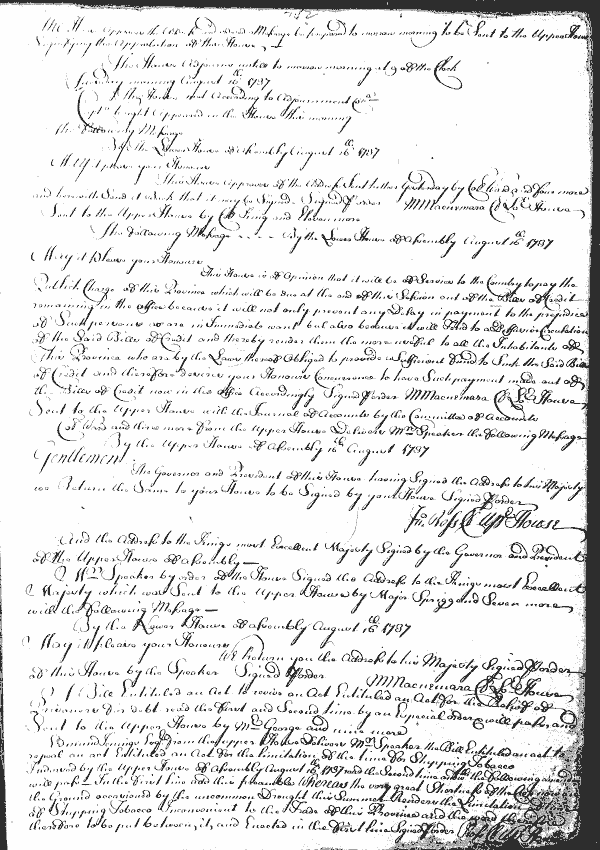 The House Approves the and said Message be prepared to morrow morning to be Sent to the Upper House
Signifying the Approbation of this House
The House Adjourns untill to morrow morning at 9 of the Clock
Tuesday morning August 16th 1737
The House met According to Adjournment
Capt Appeared in the House this morning
the following Message
By the Lower House of Assembly August 16th 1737
May it please your Honours
This House Approves of the Address Sent hither Yesterday by Col Ward and four more
and herewith Send it back that it may be Signed Signed p Order MMacnemara Cl Lo. House
Sent to the Upper House by Col King and Eleven more
The following Message By the Lower House of Assembly August 16th 1737
May it please your Honours
This House is of Opinion that it will be of Service to the Country to pay the
Publick Charge of this Province which will be due at the end of this Session out of the Bills of Credit
remaining in the office because it will not only prevent any Delay in payment to the prejudice
of Such persons who are in Immediate want but also because it will tend to Circulation
of the Said Bills of Credit and thereby render them the more useful to all the Inhabitants of
This Province who are by the Law thereof Obliged to provide a Sufficient Fund to Sink the Said Bills
of Credit and therefore desire your Honours Concurrence to have Such payment made out of
the Bills of Credit now in the office Accordingly Signed p Order MMacnemara Cl Lo. House
Sent to the Upper House with the Journal of Accounts by the Committee of Accounts
Col Ward and three more from the Upper House Delivers Mr Speaker the following Message
By the Upper House of Assembly 16th August 1737
Gentlemen
The Governor and President of this House having Signed the Address to his Majesty
we Return the Same to your House to be Signed by your House Signed p Order
Jno. Ross Cl Upr House
And the Address to the Kings most Excellent Majesty Signed by the Governor and President
of the Upper House of Assembly
Mr Speaker by order of the House Signed the Address to the Kings most Excellent
Majesty which was Sent to the Upper House by Major Sprigg and Seven more
with the following Message
By the Lower House of Assembly August 16th 1737
May it please your Honours
We Return you the Address to his Majesty Signed p Order
of this House by the Speaker Signed p Order MMacnemara Cl Lo. House
A Bill Entituled an Act to revive an Act Entituled an Act for the Relief of
Prisoners for debt read the first and Second time by an Especial order and will pass and
Sent to the Upper House by Mr George and nine more
Edmund Jenings Esqr from the Upper House delivers Mr Speaker the Bill Entituled an act to
repeal an act Entituled an Act for the Limitation of the time for Shipping Tobacco
Indorsed by the Upper House of Assembly August 16th 1737 read the Second time and the following
will pass In the first line add this preamble Whereas the very great Shortness of the Crops
the Ground occasioned by the uncommon Drought this Summer Renders the Limitation
of Shipping Tobacco Inconvenient to the Trade of this Province and the word
therefore to be put between it and Enacted in the first line Signed p Order